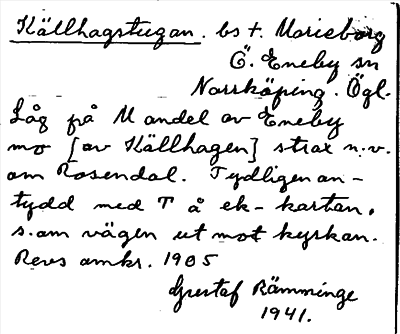 Källhagstugan. bs t. Marieborg
Ö. Eneby sn
Norrköping. Ögl.
Låg på U andel av Eneby
mo [av Källhagen] strax n.v.
om Rosendal. Tydligen an-
tydd med T å ek-kartan,
s.om vägen ut mot kyrkan.
Revs omkr. 1905
Gustaf Rämminge
1941.